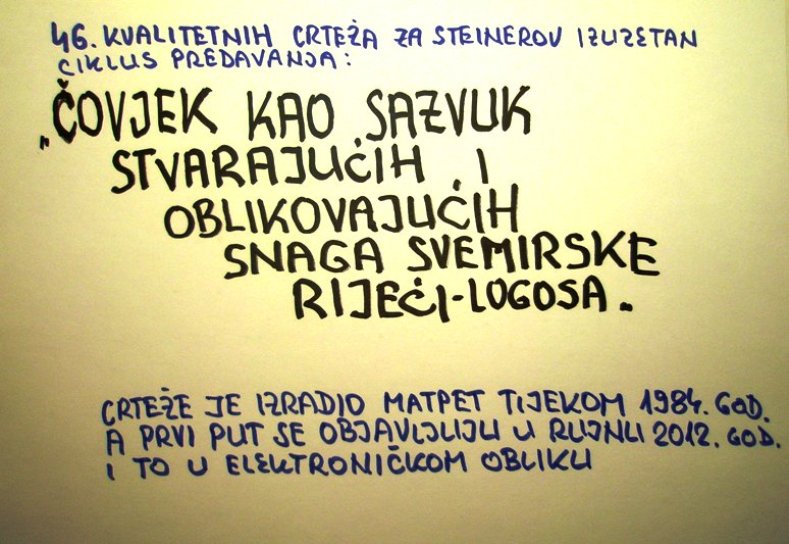 46. KVALITETNIH CRTEŽA ZA STEINEROV IZUZETAN
CIKLUS PREDAVANJA:
„ČOVJEK KAO SAZVUK
STVARAJUĆIH I
OBLIKOVAJUĆIH
SNAGA SVEMIRSKE
RIJEĆI-LOGOSA„
CRTEŽE JE IZRADIO MATPET TIJEKOM 1984. GOD.
A PRVI PUT SE OBJAVLJUJU U RUJNU 2012. GOD.
I TO U ELEKTRONIČKOM OBLIKU